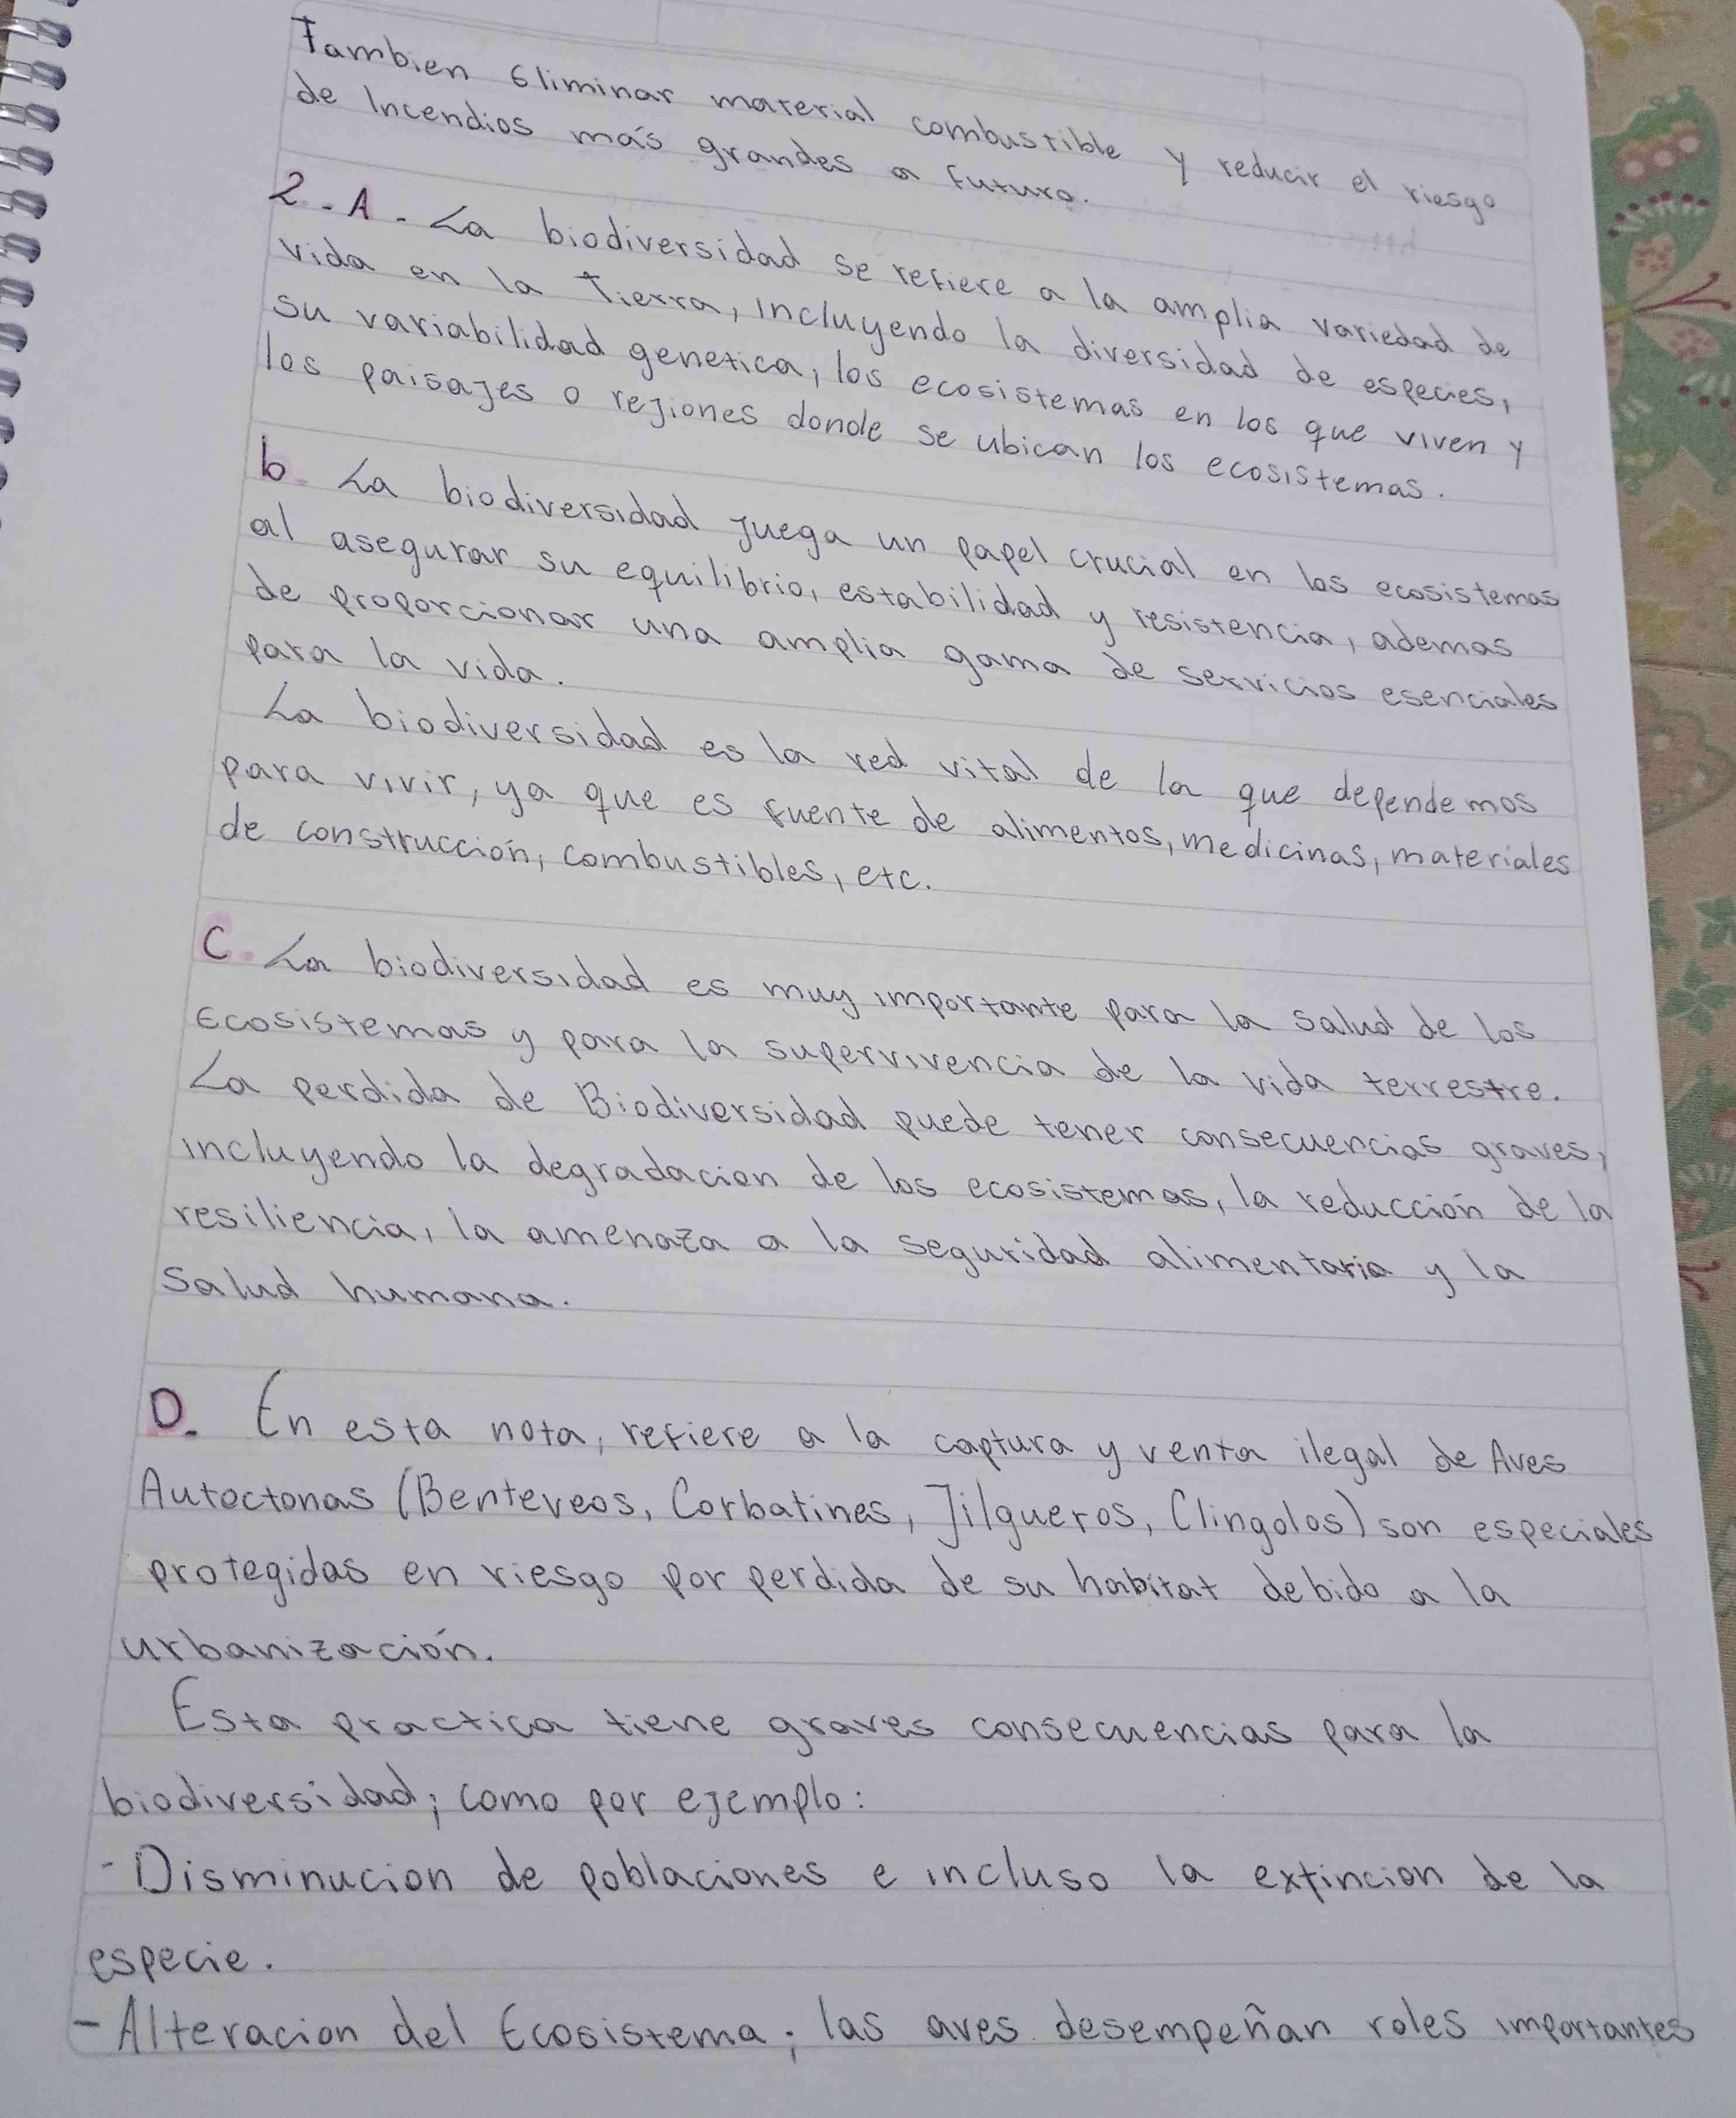 Tambien Eliminar material combustible y reducir el riesgo
de Incendios más grandes a futuro.
2-A- La biodiversidad se refiere a la amplia variedad de
vida en la Tierra, incluyendo la diversidad de especies,
su variabilidad genetica, los ecosistemas en los que viven y
los paisajes o regiones donde se ubican los ecosistemas.
b. La biodiversidad juega un papel crucial en los ecosistemas
al asegurar su equilibrio, estabilidad y resistencia, ademas
de proporcionar una amplia gama de servicios esenciales
para la vida.
La biodiversidad es la red vital de la que dependemos
para vivir, ya que es fuente de alimentos, medicinas, materiales
de construcción, combustibles, etc.
C. La biodiversidad es muy importante para la salud de los
Ecosistemas y para la supervivencia de la vida terrestre.
La perdida de Biodiversidad puede tener consecuencias graves,
incluyendo la degradacion de los ecosistemas, la reducción de la
resiliencia, la amenaza a la seguridad alimentaria y la
Salud humana.
D. En esta nota, refiere a la captura y venta ilegal de Aves
Autoctonas (Benteveos, Corbatines, Jilgueros, Clingolos) son especiales
protegidas en riesgo por perdida de su habitat debido a la
urbanización.
Esta practica tiene graves consecuencias para la
biodiversidad; como por ejemplo:
- Disminucion de poblaciones e incluso la extincion de la
especie.
- Alteracion del Ecosistema; las aves desempeñan roles importantes